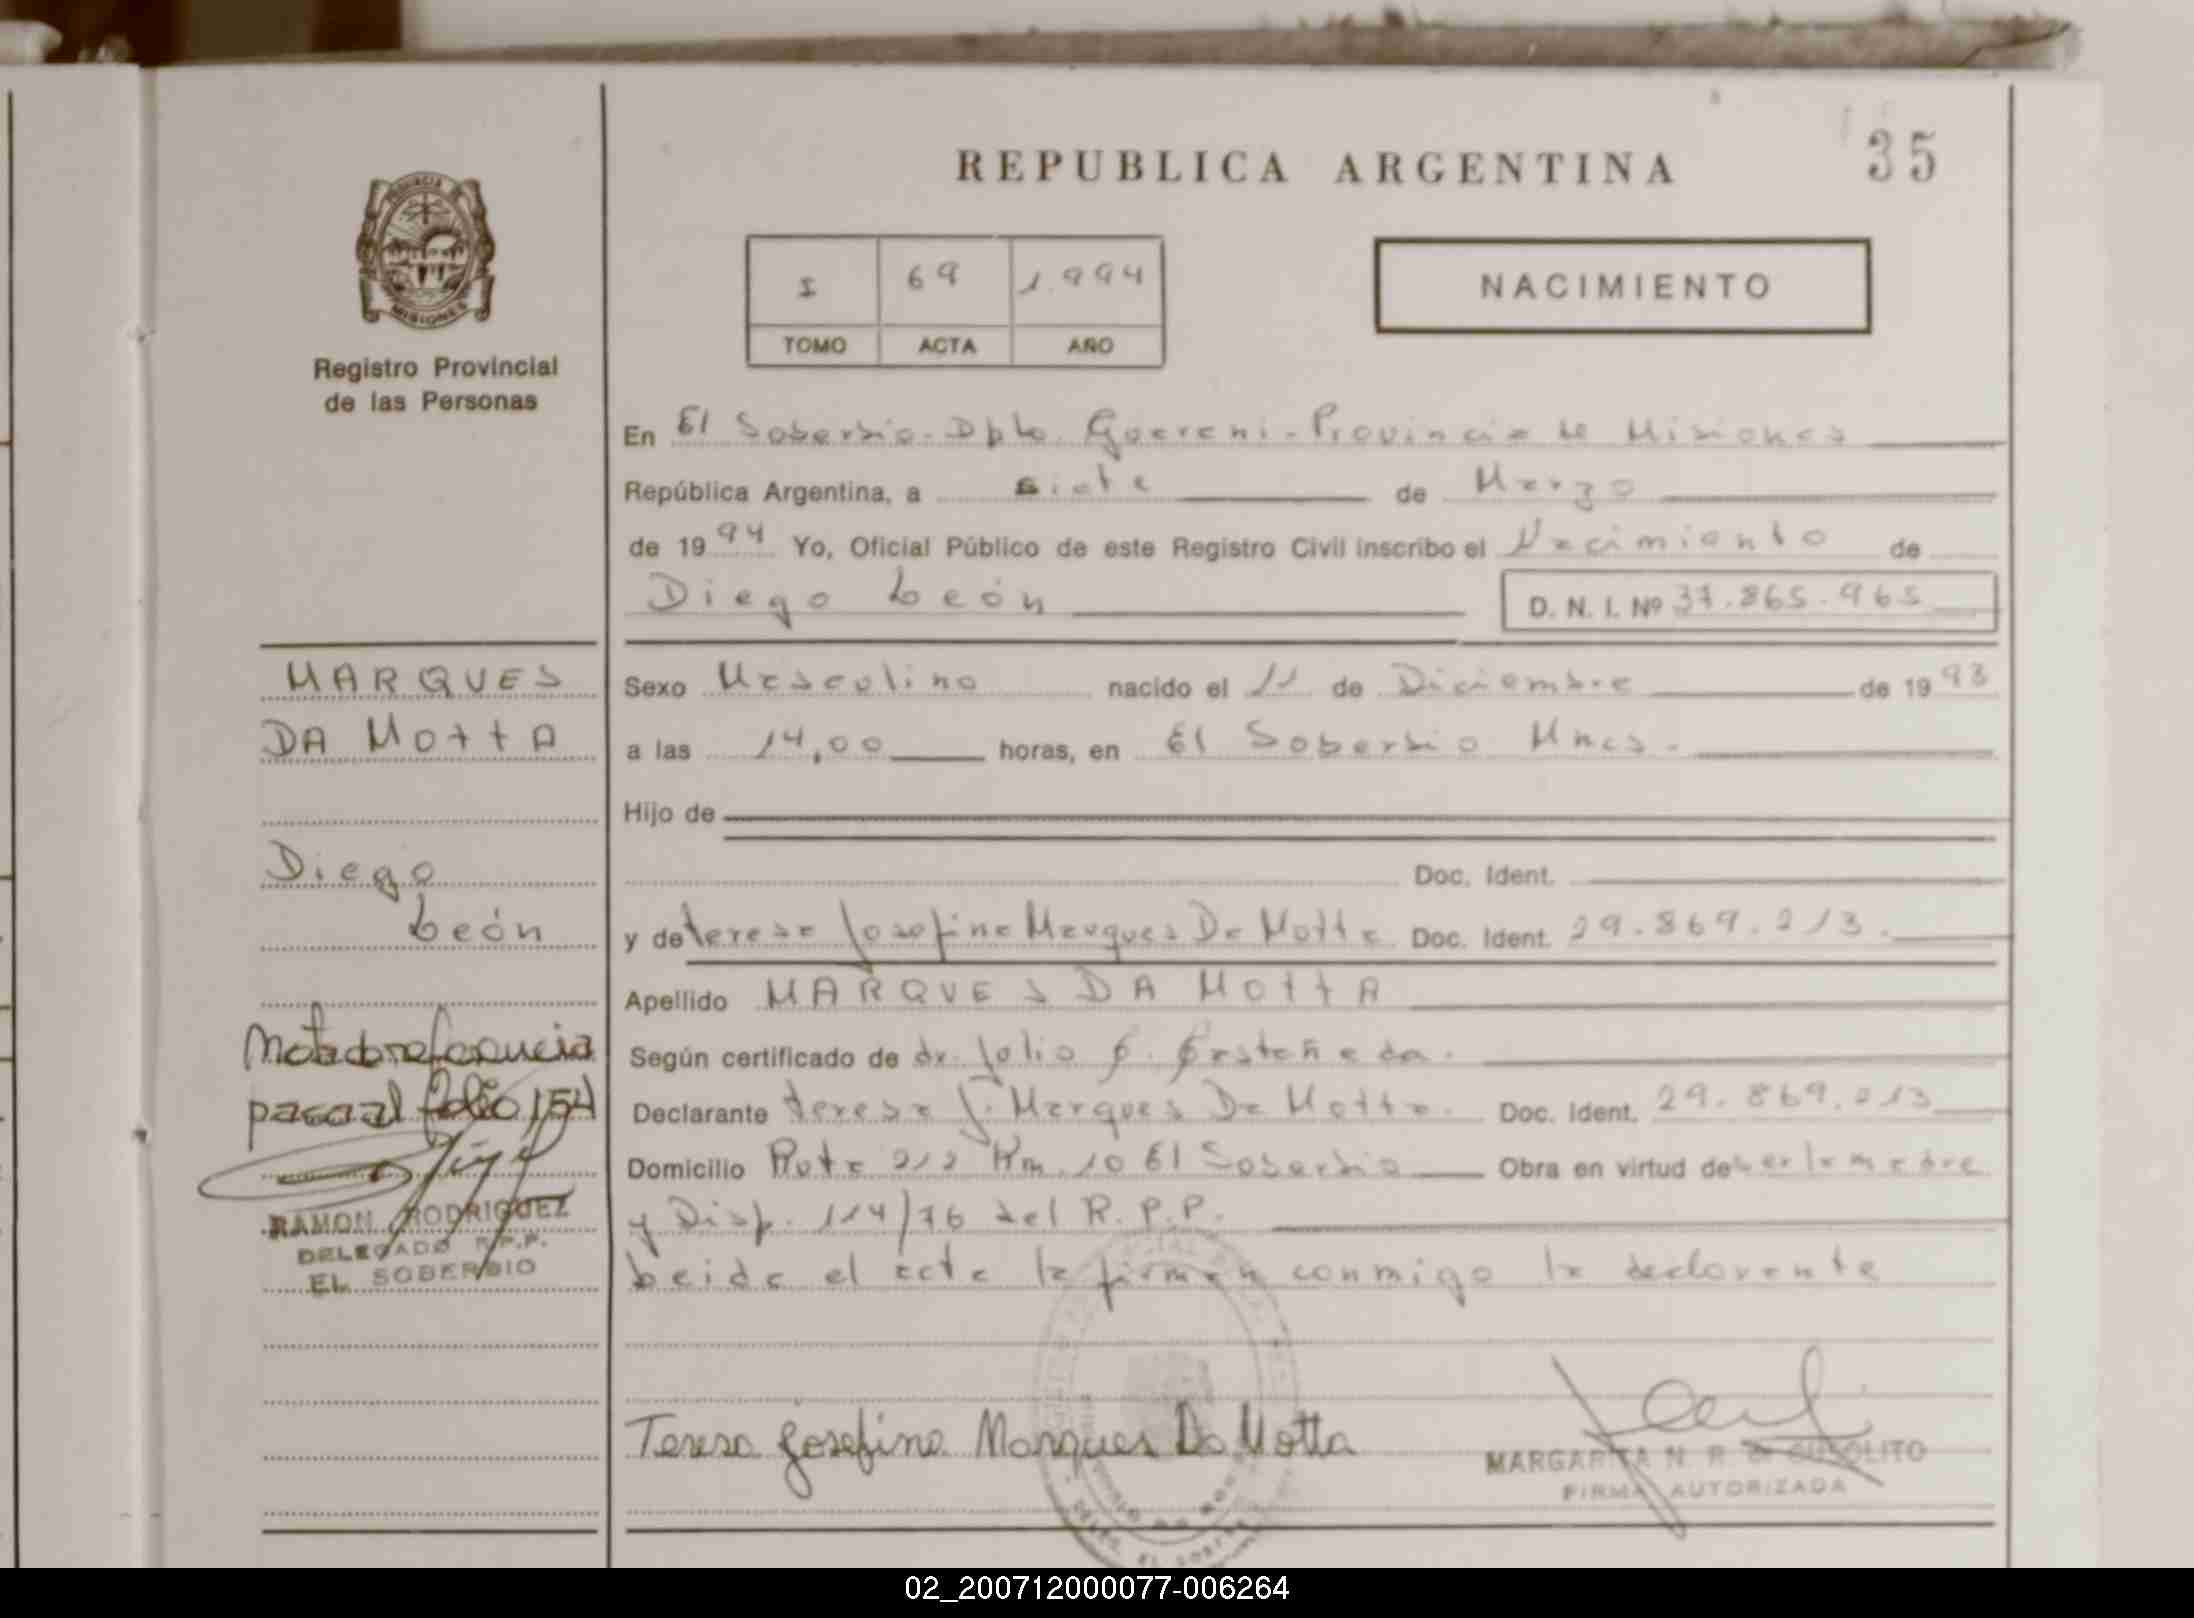 REPUBLICA ARGENTINA
35
PROVINCIA DE
MISIONES
Registro Provincial
de las Personas
I 69 1.994
TOMO ACTA AÑO
NACIMIENTO
En El Soberbio - Dpto. Guarani - Provincia de Misiones
República Argentina, a siete de Marzo
de 1994 Yo, Oficial Público de este Registro Civil inscribo el Nacimiento de
Diego León
D. N. I. Nº 37.865.965
MARQUES
DA MOttA
Diego
León
Sexo Masculino nacido el 11 de Diciembre de 1993
a las 14,00 horas, en El Soberbio Mnes.
Hijo de
Doc. Ident.
y de teresa Josefina Marques Da Motta Doc. Ident. 29.869.213.
Apellido MARQUES DA MOttA
Según certificado de dr. Julio
Declarante teresa J. Marques Da Motta. Doc. Ident. 29.869.213
Domicilio Ruta 212 Km. 10 El Soberbio Obra en virtud de ser la madre
y Disp. 114/76 del R.P.P.
Leida el acta la firman conmigo la declarante
Nota de referencia
pasa al folio 154
RAMON RODRIGUEZ
DELEGADO R.P.P.
EL SOBERBIO
Teresa Josefina Marques Da Motta
MARGARITA N. R.
FIRMA AUTORIZADA
02_200712000077-006264